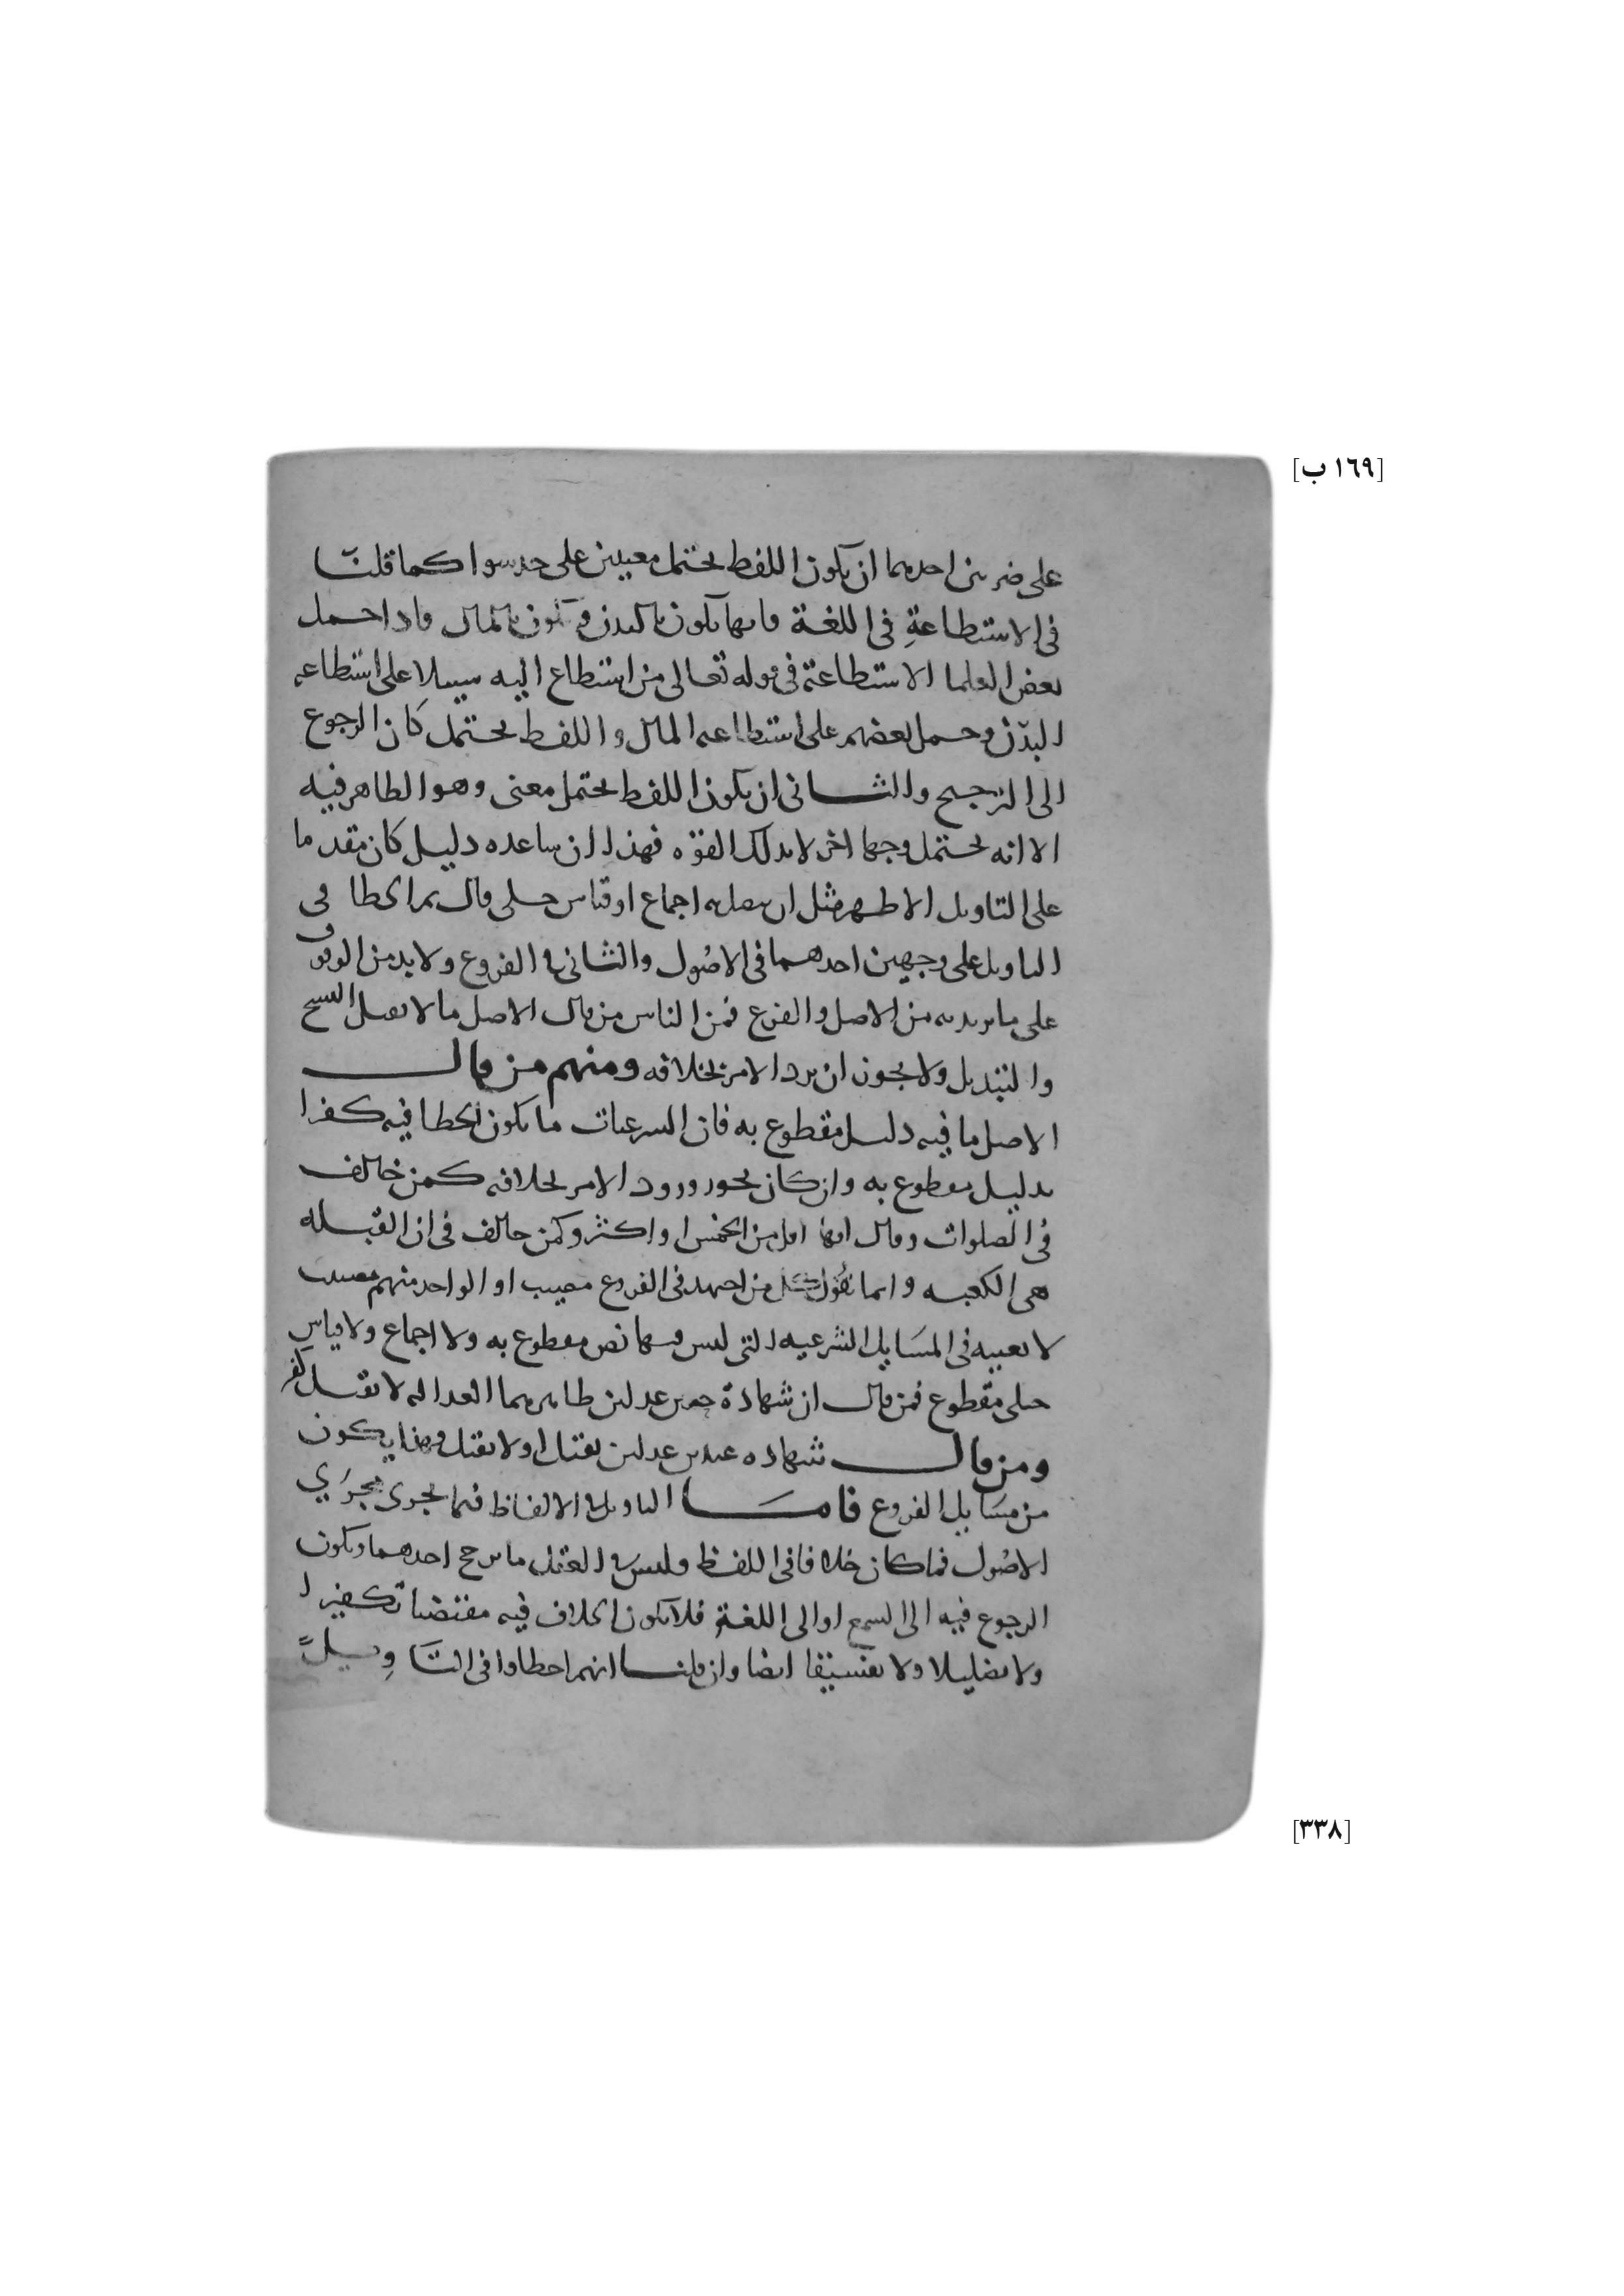 [١٦٩ ب]
على ضربين احدهما ان يكون اللفظ يحتمل معنيين على حد سوا كما قلنا
فى الاستطاعةِ فى اللغة فانها تكون بالبدن وتكون بالمال فاذا حمل
بعض العلما الاستطاعة فى قوله تعالى من استطاع اليه سبيلا على استطاعه
البدن وحمل بعضهم على استطاعه المال واللفظ يحتمل كان الرجوع
الى الترجيح والثانى ان يكون اللفظ يحتمل معنى وهو الظاهر فيه
الا انه يحتمل وجها اخر لا بذلك القوه فهذا ان ساعده دليل كان مقدما
على التاويل الاظهر مثل ان اجماع او قياس جلى قال الخطا فى
التاويل على وجهين احدهما فى الاصُول والثانى فى الفروع ولا بد من الوقوف
على ما نريده من الاصل والفرع فمن الناس من قال الاصل ما لا يقبل النسخ
والتبديل ولا يجوز ان يرد الامر بخلافه ومنهم من قال
الاصل ما فيه دليل مقطوع به فان الشرعيات ما يكون الخطا فيه كفرا
بدليل مقطوع به وان كان يجوز ورود الامر بخلافه كمن خالف
فى الصلوات وقال انها اقل من الخمس او اكثر وكمن خالف فى ان القبله
هى الكعبه وانما نقول كل من اجتهد فى الفروع مصيب او الواحد منهم مصيب
لا بعينه فى المسَايل الشرعيه التى ليس فيها نص مقطوع به ولا اجماع ولا قياس
جلى مقطوع فمن قال ان شهادة عدلين ظاهرهما العداله لا تقبل كفر
ومن قال شهاده عبدين عدلين تقبل او لا تقبل فهذا يكون
من مسَايل الفروع فامَّا التاويل فى الالفاظ فيما يجرى مجرَي
الاصُول فما كان خلافا فى اللفظ وليس فى العقل ما يرجح احدهما ويكون
الرجوع فيه الى السمع او الى اللغة فلا يكون الخلاف فيه مقتضيا تكفيرا
ولا تضليلا ولا تفسيقا ايضا وان قلنا انهم اخطاوا فى التَاوِيل
[٣٣٨]